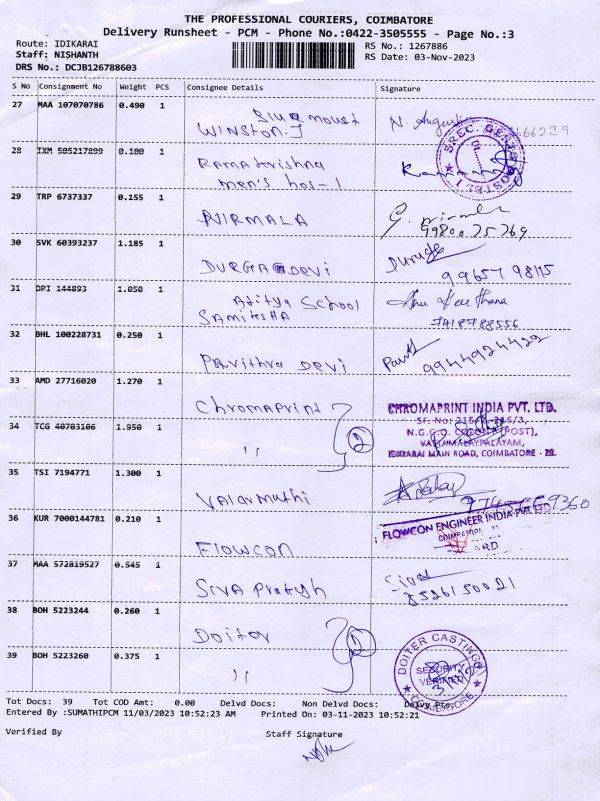 THE PROFESSIONAL COURIERS, COIMBATORE
Delivery Runsheet - PCM - Phone No.:0422-3505555 - Page No.:3
Route: IDIKARAI
RS No.: 1267886
Staff: NISHANTH
RS Date: 03-Nov-2023
DRS No.: DCJB126788603
S No Consignment No Weight PCS Consignee Details Signature
27 MAA 107070786 0.490 1
WINSTON.J
28 IXM 505217899 0.100 1
Ramakrishna
men's hos-1
29 TRP 6737337 0.155 1
NIRMALA
30 SVK 60393237 1.185 1
DURGA DEVI
31 DPI 144893 1.050 1
Aditya School
SAMIKSHA
7418788556
32 BHL 100228731 0.250 1
Pavithra DEVI
9944924422
33 AMD 27716020 1.270 1
Chromaprint
CHROMAPRINT INDIA PVT. LTD.
34 TCG 40703106 1.950 1
" 2
VATTAMALAIPALAYAM,
IDIKARAI MAIN ROAD, COIMBATORE - 22.
35 TSI 7194771 1.300 1
Valarmathi
36 KUR 7000144781 0.210 1
FLOWCON ENGINEER INDIA PVT LTD
FLOWCON
37 MAA 572819527 0.545 1
Siva Prakash
8526150021
38 BOH 5223244 0.260 1
Doiter
39 BOH 5223260 0.375 1
" 2
DOITER CASTINGS
SECURITY
VERIFIED
COIMBATORE
Tot Docs: 39 Tot COD Amt: 0.00 Delvd Docs: Non Delvd Docs: Delvy Pts:
Entered By :SUMATHIPCM 11/03/2023 10:52:23 AM Printed On: 03-11-2023 10:52:21
Verified By Staff Signature